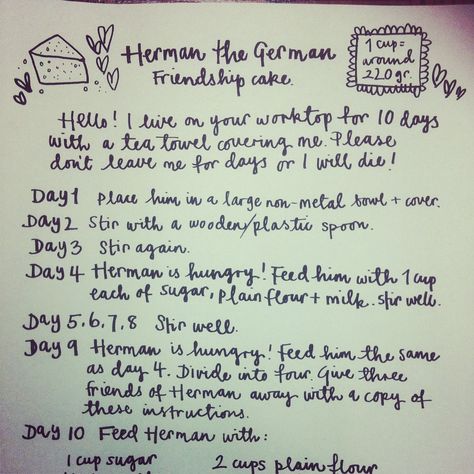 Herman the German
Friendship cake.
1 cup =
around
220 gr.
Hello! I live on your worktop for 10 days
with a tea towel covering me. Please
don't leave me for days or I will die!
Day 1 Place him in a large non-metal bowl + cover.
Day 2 Stir with a wooden/plastic spoon.
Day 3 Stir again.
Day 4 Herman is hungry! Feed him with 1 cup
each of sugar, plain flour + milk. Stir well.
Day 5,6,7,8 Stir well.
Day 9 Herman is hungry! Feed him the same
as day 4. Divide into four. Give three
friends of Herman away with a copy of
these instructions.
Day 10 Feed Herman with:
1 cup sugar 2 cups plain flour